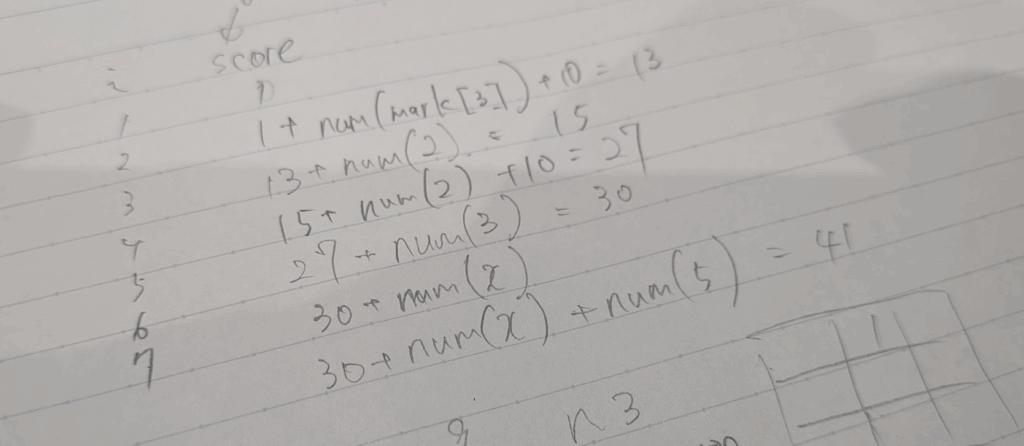 score
i 1)
1 1 + num(mark[3]) + 10 = 13
2 13 + num(2) = 15
3 15 + num(2) + 10 = 27
4 27 + num(3) = 30
5 30 + num(x)
6 30 + num(x) + num(5) = 41
7
1
n 3